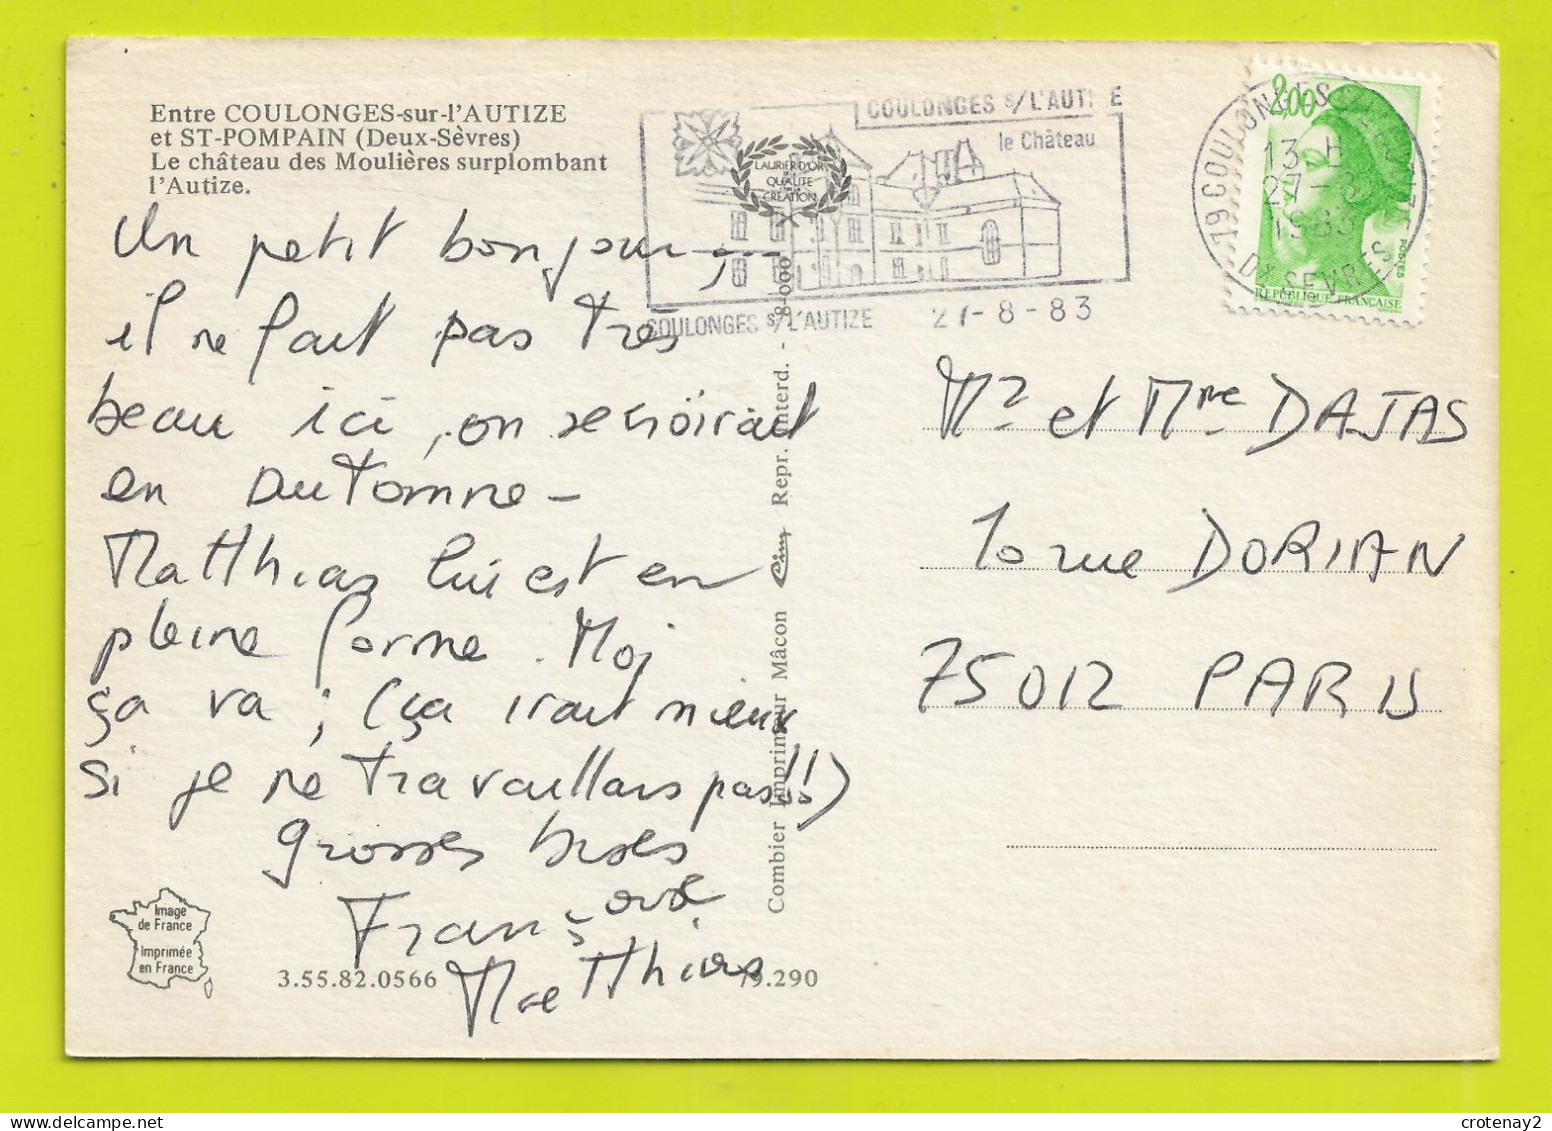 Entre COULONGES-sur-l'AUTIZE
et ST-POMPAIN (Deux-Sèvres)
Le château des Moulières surplombant
l'Autize.
Un petit bonjour,
il ne fait pas très
beau ici, on se croirait
en Automne -
Matthias lui est en
pleine forme. Moi
ça va ; (ça irait mieux
si je ne travaillais pas!!!)
Grosses bises
Françoise
Matthias
Image
de France
Imprimée
en France
3.55.82.0566
79.290
Combier Imprimeur Mâcon Cim Repr. interd. - 8-000
COULONGES s/L'AUTIZE
le Château
LAURIER D'OR
QUALITÉ
CRÉATION
COULONGES s/L'AUTIZE 27-8-83
2,00
POSTES
RÉPUBLIQUE FRANÇAISE
19 COULONGES
13 H
27-8
1983
DX SEVRES
Mr et Mme DAJAS
10 rue DORIAN
75012 PARIS
crotenay2